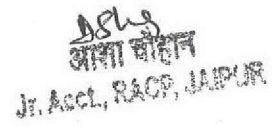 आशा चौहान
Jr. Acct., RACP, JAIPUR